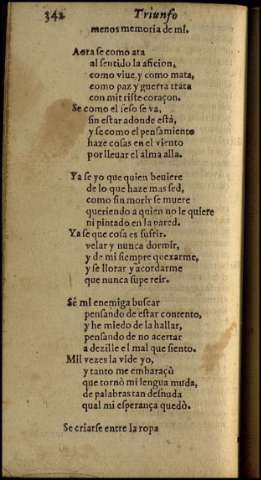 342 Triunfo
menos memoria de mi.
Aora se como ata
al sentido la aficion,
como viue, y como mata,
como paz y guerra trata
con mi triste coraçon.
Se como el seso se va,
sin estar adonde està,
y se como el pensamiento
haze cosas en el viento
por lleuar el alma alla.
Ya se yo que quien beuiere
de lo que haze mas sed,
como sin morir se muere
queriendo a quien no le quiere
ni pintado en la pared.
Ya se que cosa es sufrir.
velar y nunca dormir,
y de mi siempre quexarme,
y se llorar y acordarme
que nunca supe reir.
Sè mi enemiga buscar
pensando de estar contento,
y he miedo de la hallar,
pensando de no acertar
a dezille el mal que siento.
Mil vezes la vide yo,
y tanto me embaraçù
que tornò mi lengua muda,
de palabras tan desnuda
qual mi esperança quedò.
Se criarse entre la ropa